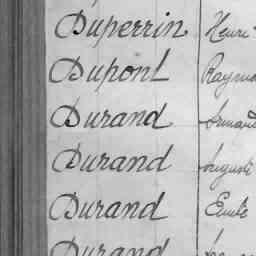 Duperrin Henri
Dupont Raymo
Durand Armand
Durand Auguste
Durand Emile
Durand